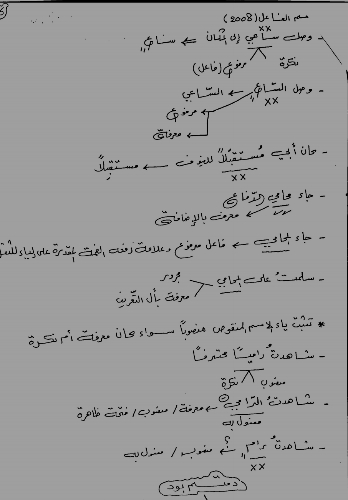 اسم الفاعل (2008)
- وصل ساعي إلى المكان ← ساعٍ
xx
نكرة مرفوع (فاعل)
- وصل الساعِ ← الساعي
xx
مرفوع
معرفة
- كان أبي مُستقبَلاً للضيوف ← مستقبِلاً
xx
- جاء محامي الدفاع
معرف بالإضافة
- جاء المحامي ← فاعل مرفوع وعلامة رفعه الضمة المقدرة على الياء للثقل
- سلمت على المحامي مجرور
معرفة بأل التعريف
* تثبت ياء الاسم المنقوص منصوباً سواء كان معرفة أم نكرة
- شاهدتُ رامياً محترفاً
منصوب نكرة
- شاهدتُ الراميَ ← معرفة / منصوب / فتحة ظاهرة
مفعول به
- شاهدتُ رامٍ ؟ ← منصوب / مفعول به
xx